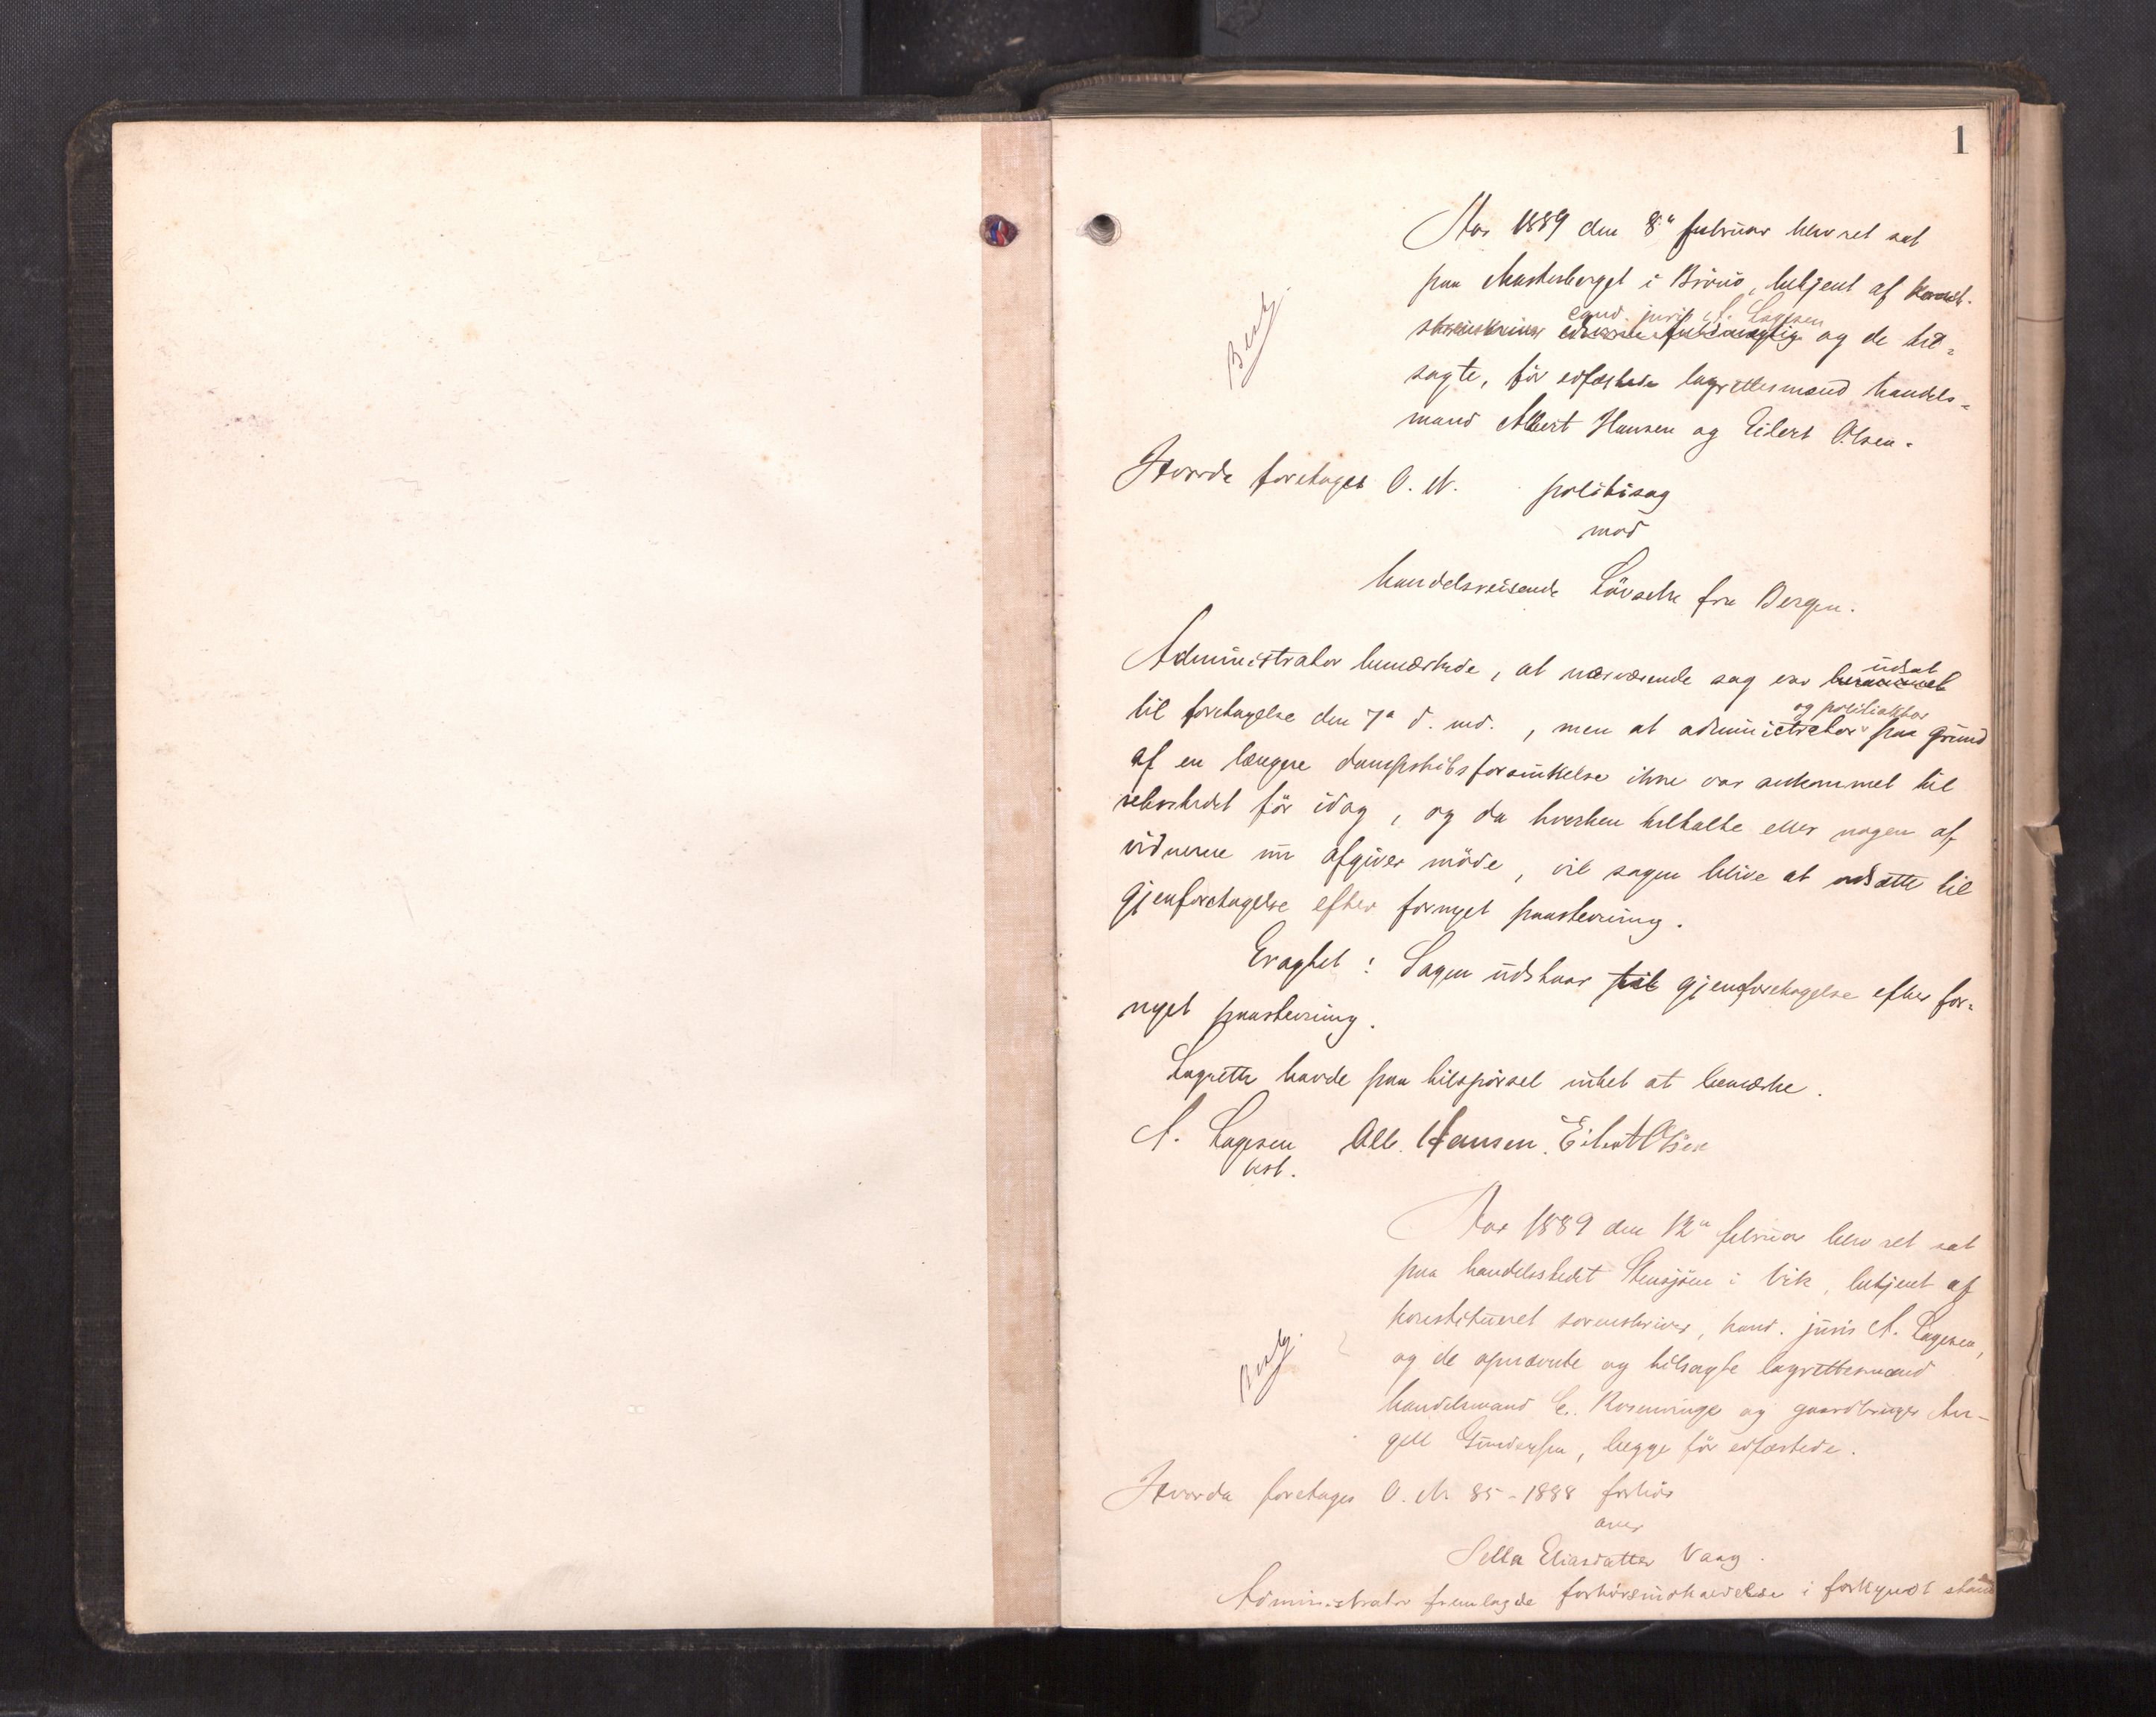 1
Aar 1889 den 8de februar blev ret sat
paa Mosterberget i Brönö, betjent af konst.
cand. juris A. Lagesen
sorenskriver og de til-
sagte, för edfæstede lagrettesmænd handels-
mand Albert Hansen og Eilert Olsen.
Hvorda foretages O. N. politisag
mod
handelsreisende Lövache fra Bergen.
Administrator bemærkede, at nærværende sag var berammet
udsat
til foretagelse den 7de d. md., men at administrator paa grund
og politiaktor
af en længere dampskibsforsinkelse ikke var ankommet til
retsstedet för idag, og da hverken tiltalte eller nogen af
vidnerne nu afgiver möde, vil sagen blive at udsætte til
gjenforetagelse efter fornyet paastevning.
Eragtet: Sagen udstaar til gjenforetagelse efter for-
nyet paastevning.
Lagrette havde paa tilspörsel intet at bemærke.
A. Lagesen Alb. Hansen. Eilert Olsen
kst.
Aar 1889 den 12te februar blev ret sat
paa handelsstedet Stensjöen i Vik, betjent af
konstitueret sorenskriver, kand. juris A. Lagesen,
og de opnævnte og tilsagte lagrettesmænd
handelsmand C. Rosenvinge og gaardbruger An-
gell Gundersen, begge för edfæstede.
Hvorda foretages O. N. 85 - 1888 forhör
over
Sella Eliasdatter Vaag.
Administrator fremlagde forhörsindkaldelse i forkyndt stand
Besk.
Besk.